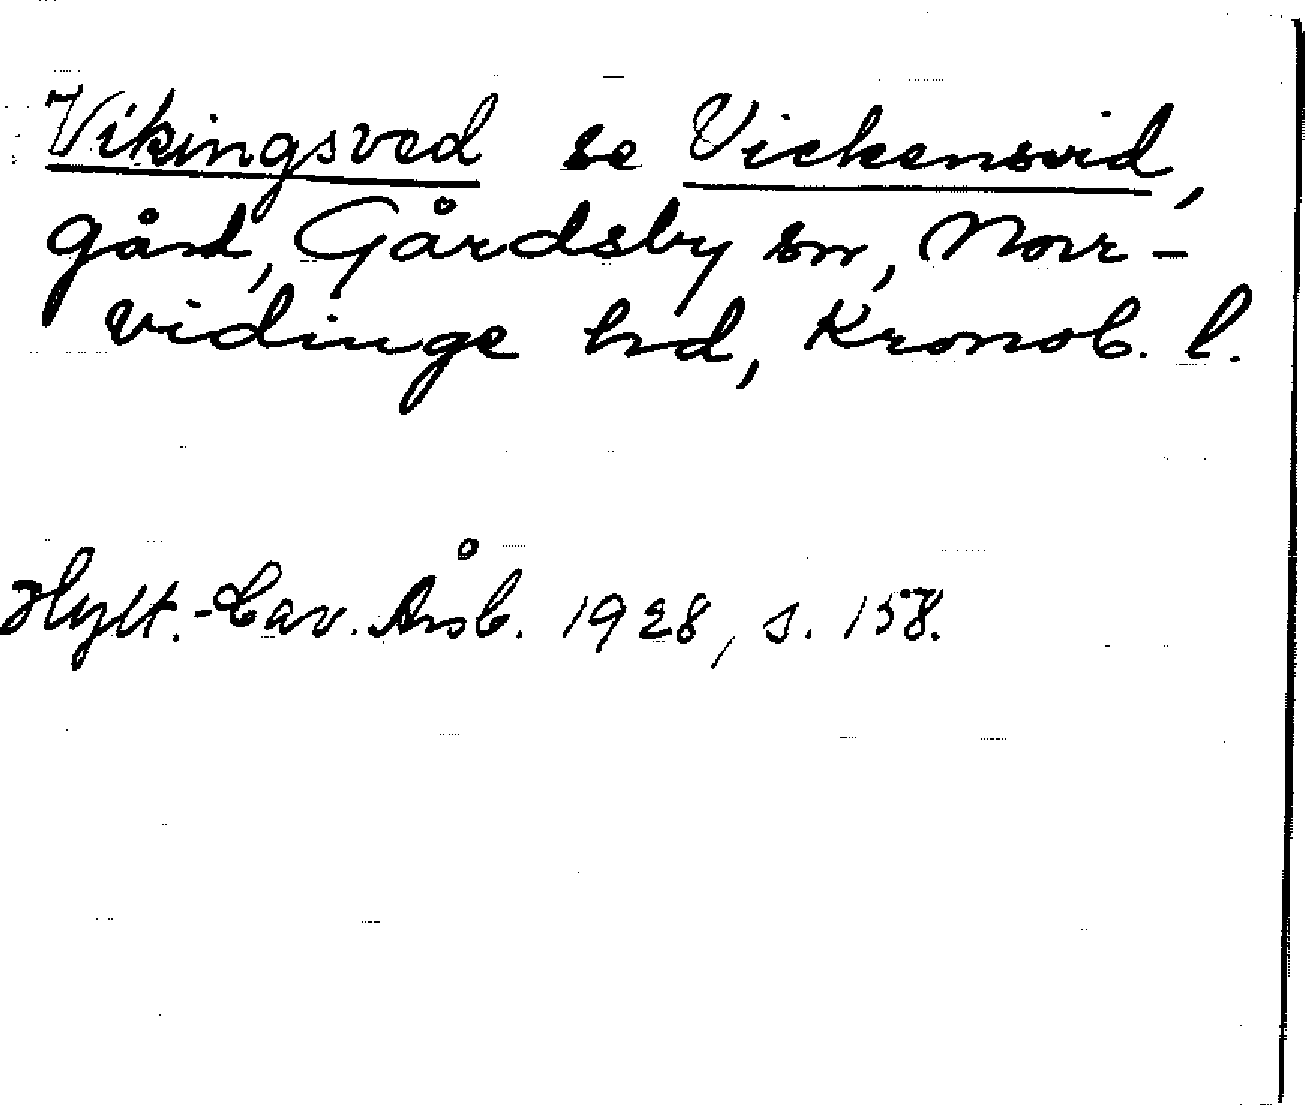 Vikingsved se Vickensvid,
gård, Gårdsby sn, Norr-
vidinge hd, Kronob. l.
Hylt.-Cav. Årsb. 1928, s. 158.